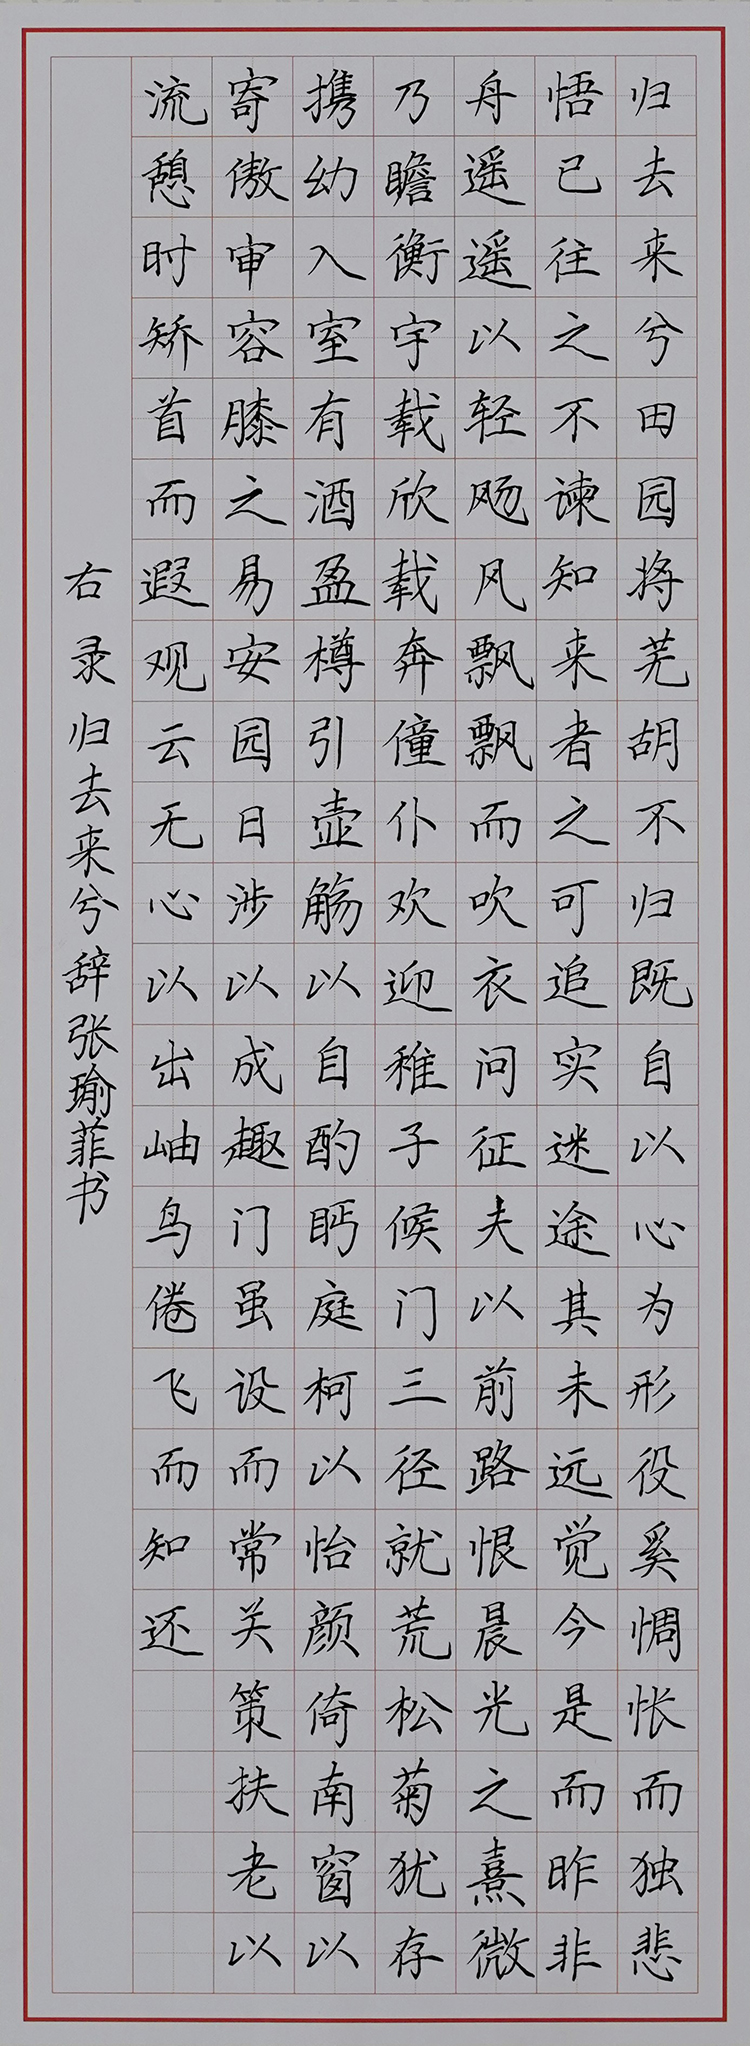 归去来兮田园将芜胡不归既自以心为形役奚惆怅而独悲
悟已往之不谏知来者之可追实迷途其未远觉今是而昨非
舟遥遥以轻飏风飘飘而吹衣问征夫以前路恨晨光之熹微
乃瞻衡宇载欣载奔僮仆欢迎稚子候门三径就荒松菊犹存
携幼入室有酒盈樽引壶觞以自酌眄庭柯以怡颜倚南窗以
寄傲审容膝之易安园日涉以成趣门虽设而常关策扶老以
流憩时矫首而遐观云无心以出岫鸟倦飞而知还
右录归去来兮辞张瑜菲书